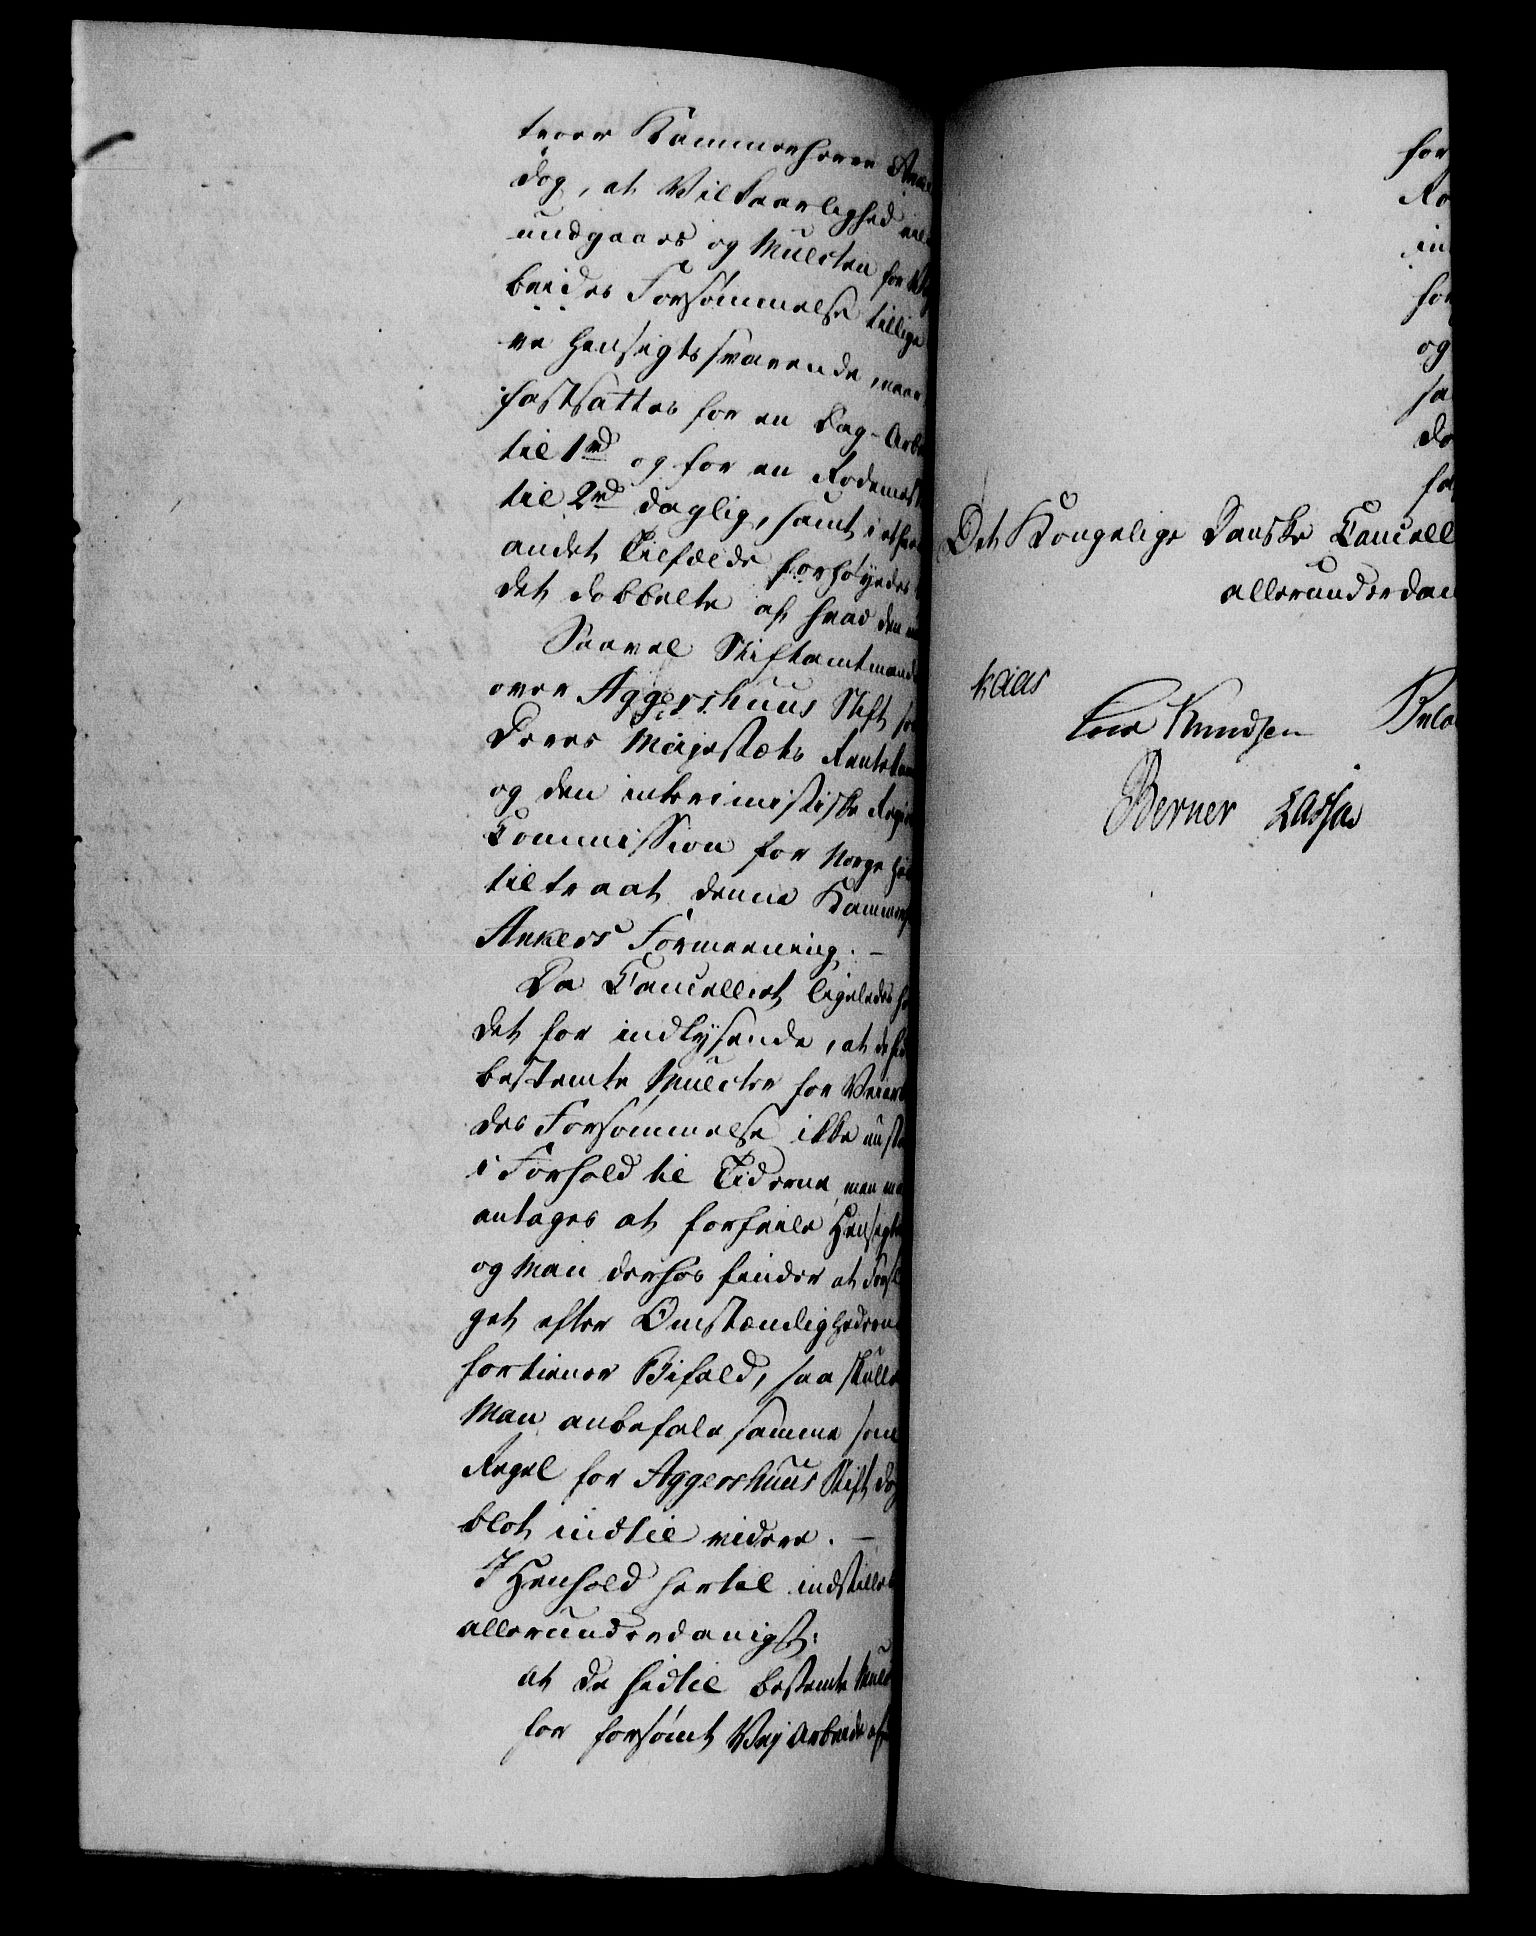 troer Kammerherre
dog, at Vilkaarlighed
undgaaes og Mulcten for
beides Forsømmelse tillige
ve hensigtssvarende, naar
fastsættes for en Dag-Arb
til 1 rd og for en Rodemest
til 2 rd daglig, samt i ethve
andet Tilfælde forhøyedes
det dobbelte af hvad den
Saavel Stiftamtmand
over Aggershuus Stift so
Deres Majestæts Rentekam
og den interimistiske Regie
Commission for Norge ha
tiltraadt denne Kammerh
Ankers Formeening. –
Da Cancelliet ligeledes ha
det for indlysende, at de hid
bestemte Mulcter for Veiarb
des Forsømmelse ikke
i Forhold til Tiderne, men
antages at forfeile Hensigte
og Man derhos finder at Forsl
get efter Omstændighederne
fortiener Bifald, saa skulle
Man anbefale samme som
Regel for Aggershuus Stift dog
blot indtil videre. –
I Henhold hertil indstilles
allerunderdanigst:
at de hidtil bestemte Mulc
for forsømt Vej Arbeide
for
Ro
in
for
og
sa
do
Det Kongelige Danske Cancell
allerunderdan
Kaas
Knudsen
Berner Lassen